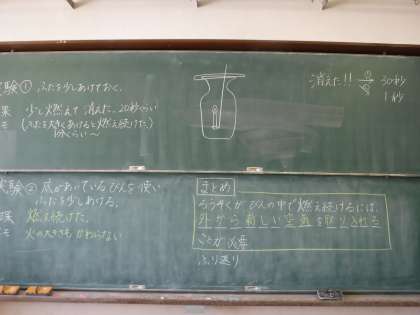 実験① ふたを少しあけておく。
結果 少し燃えて消えた。20秒くらい
メモ (ふたを大きくあけると燃え続けた。)
1分くらい〜
消えた!!
30秒
1秒
実験② 底があいているびんを使い
ふたを少しあける。
結果 燃え続けた。
メモ 火の大きさもかわらない
まとめ
ろうそくがびんの中で燃え続けるには、
外から新しい空気を取り入れる
ことが必要
ふり返り